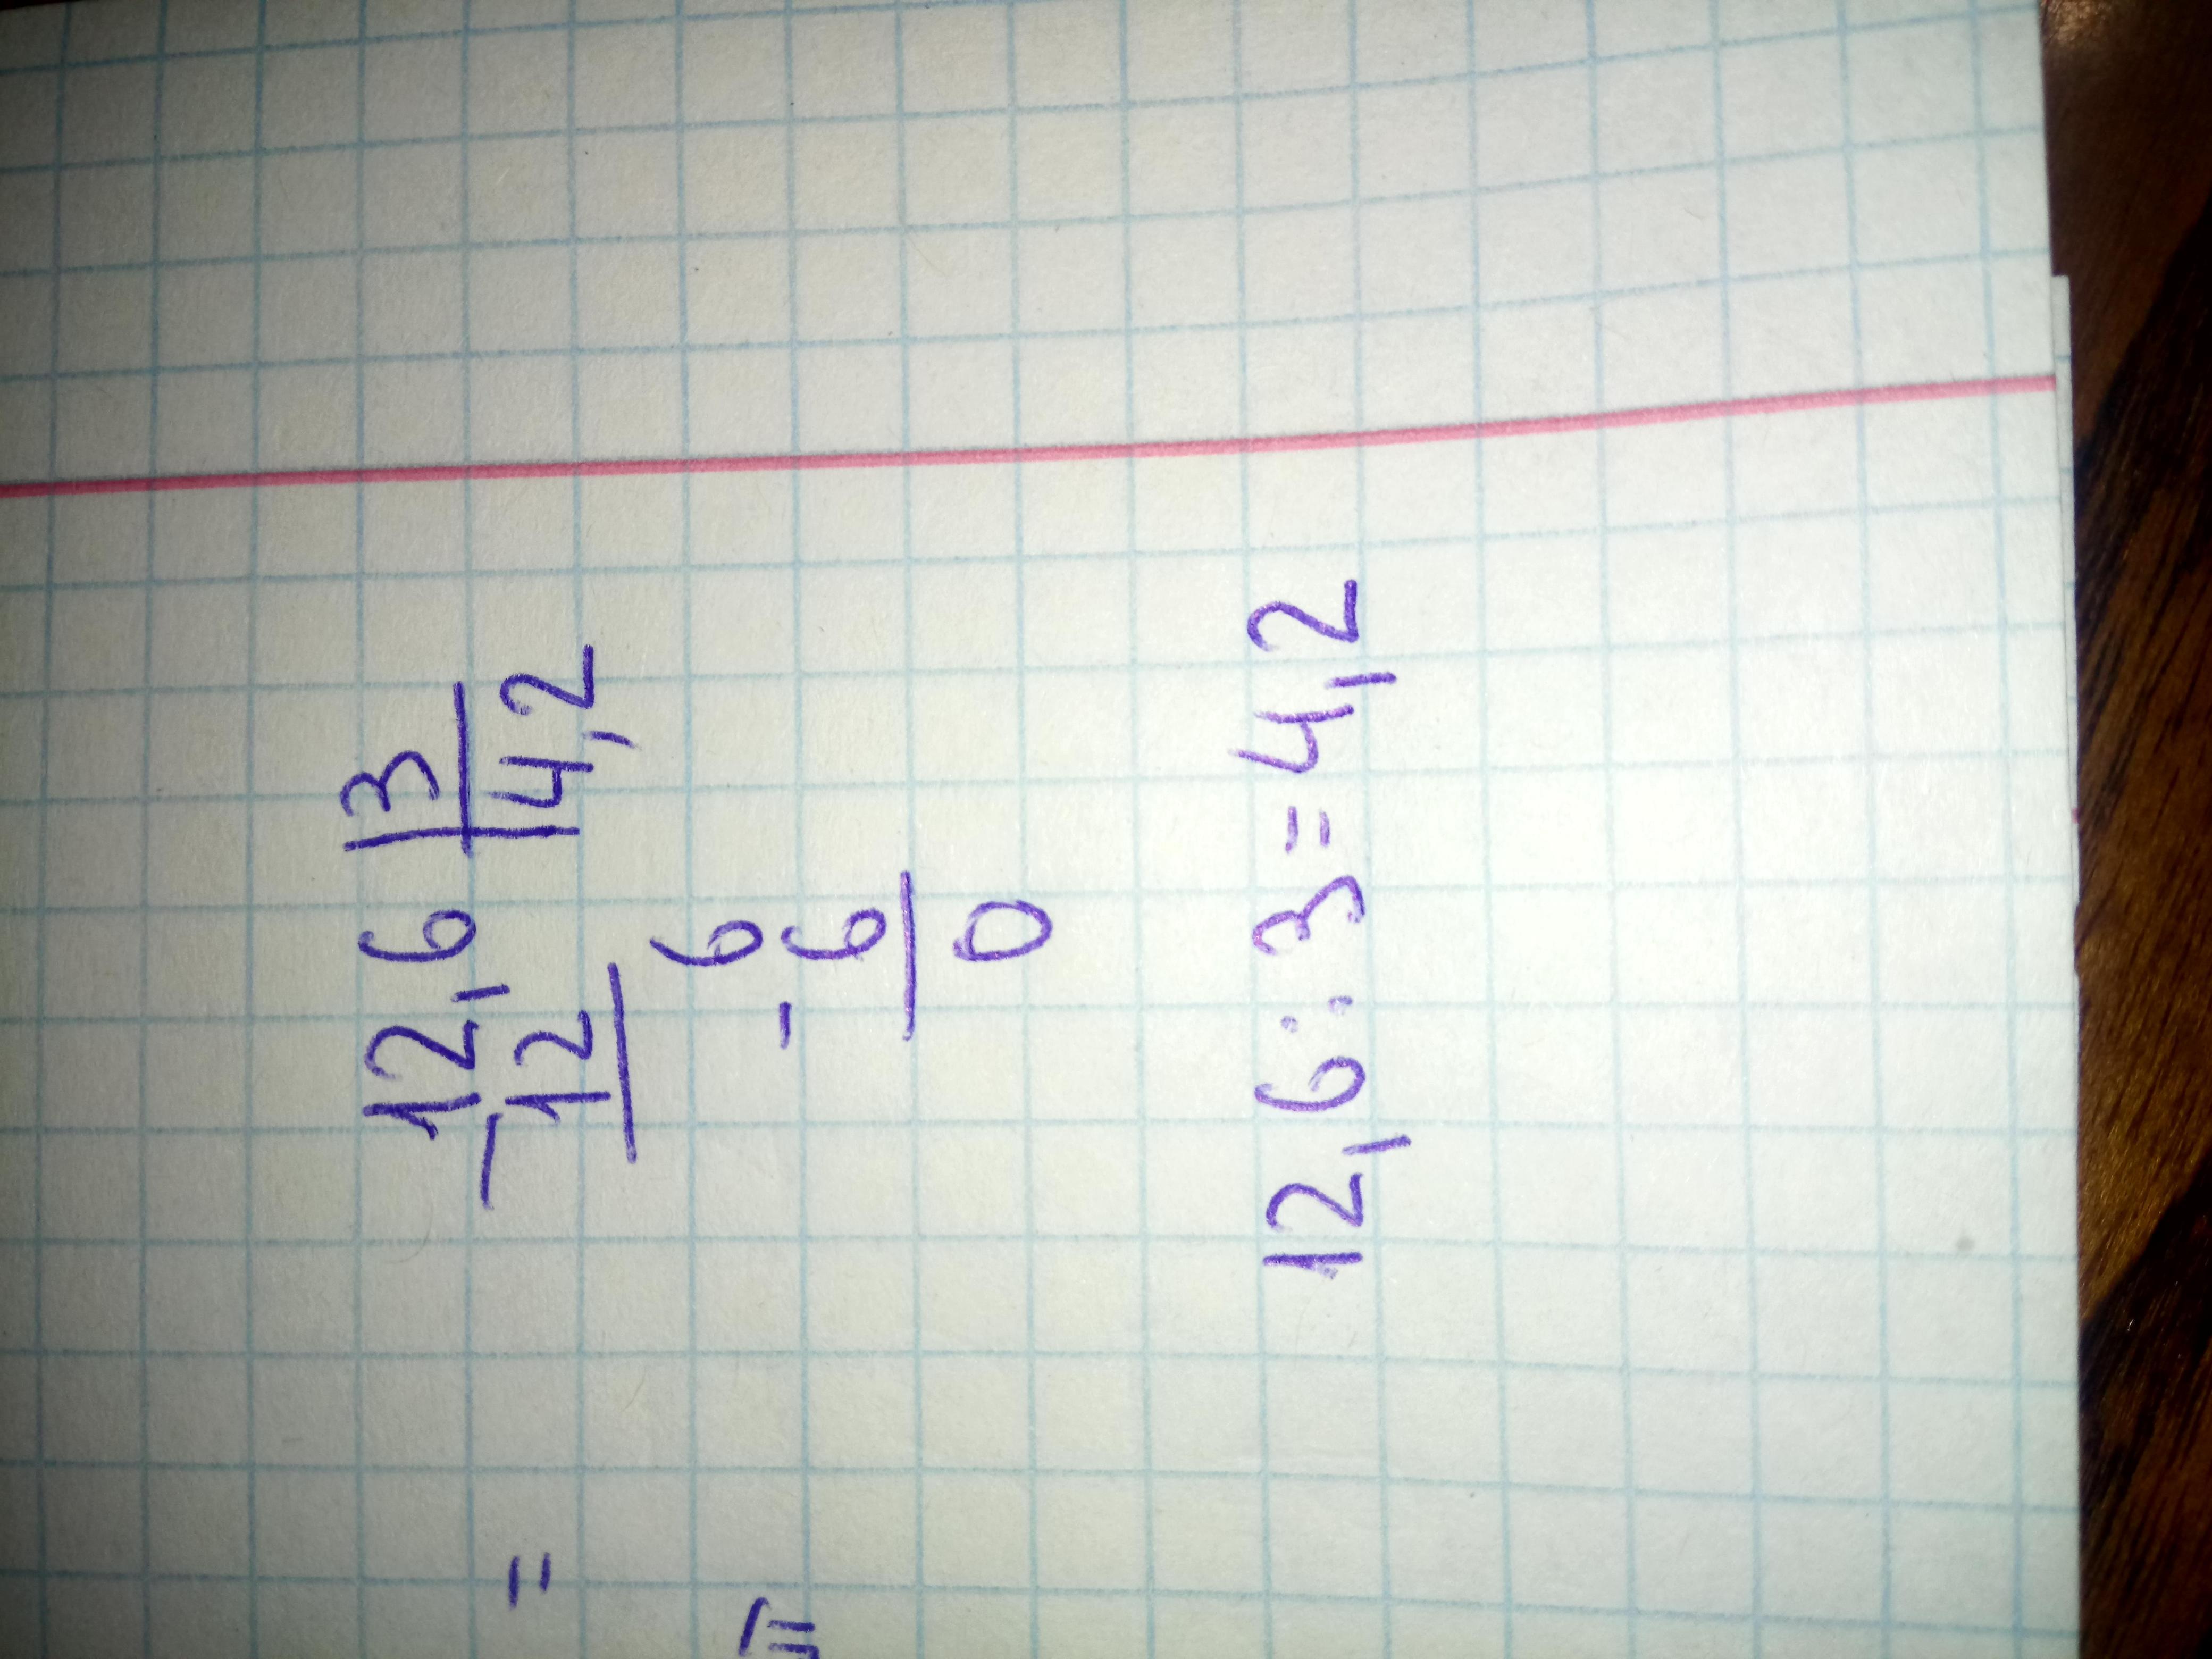 12,6 | 3
- 12 | 4,2
6
- 6
0
12,6 : 3 = 4,2
=